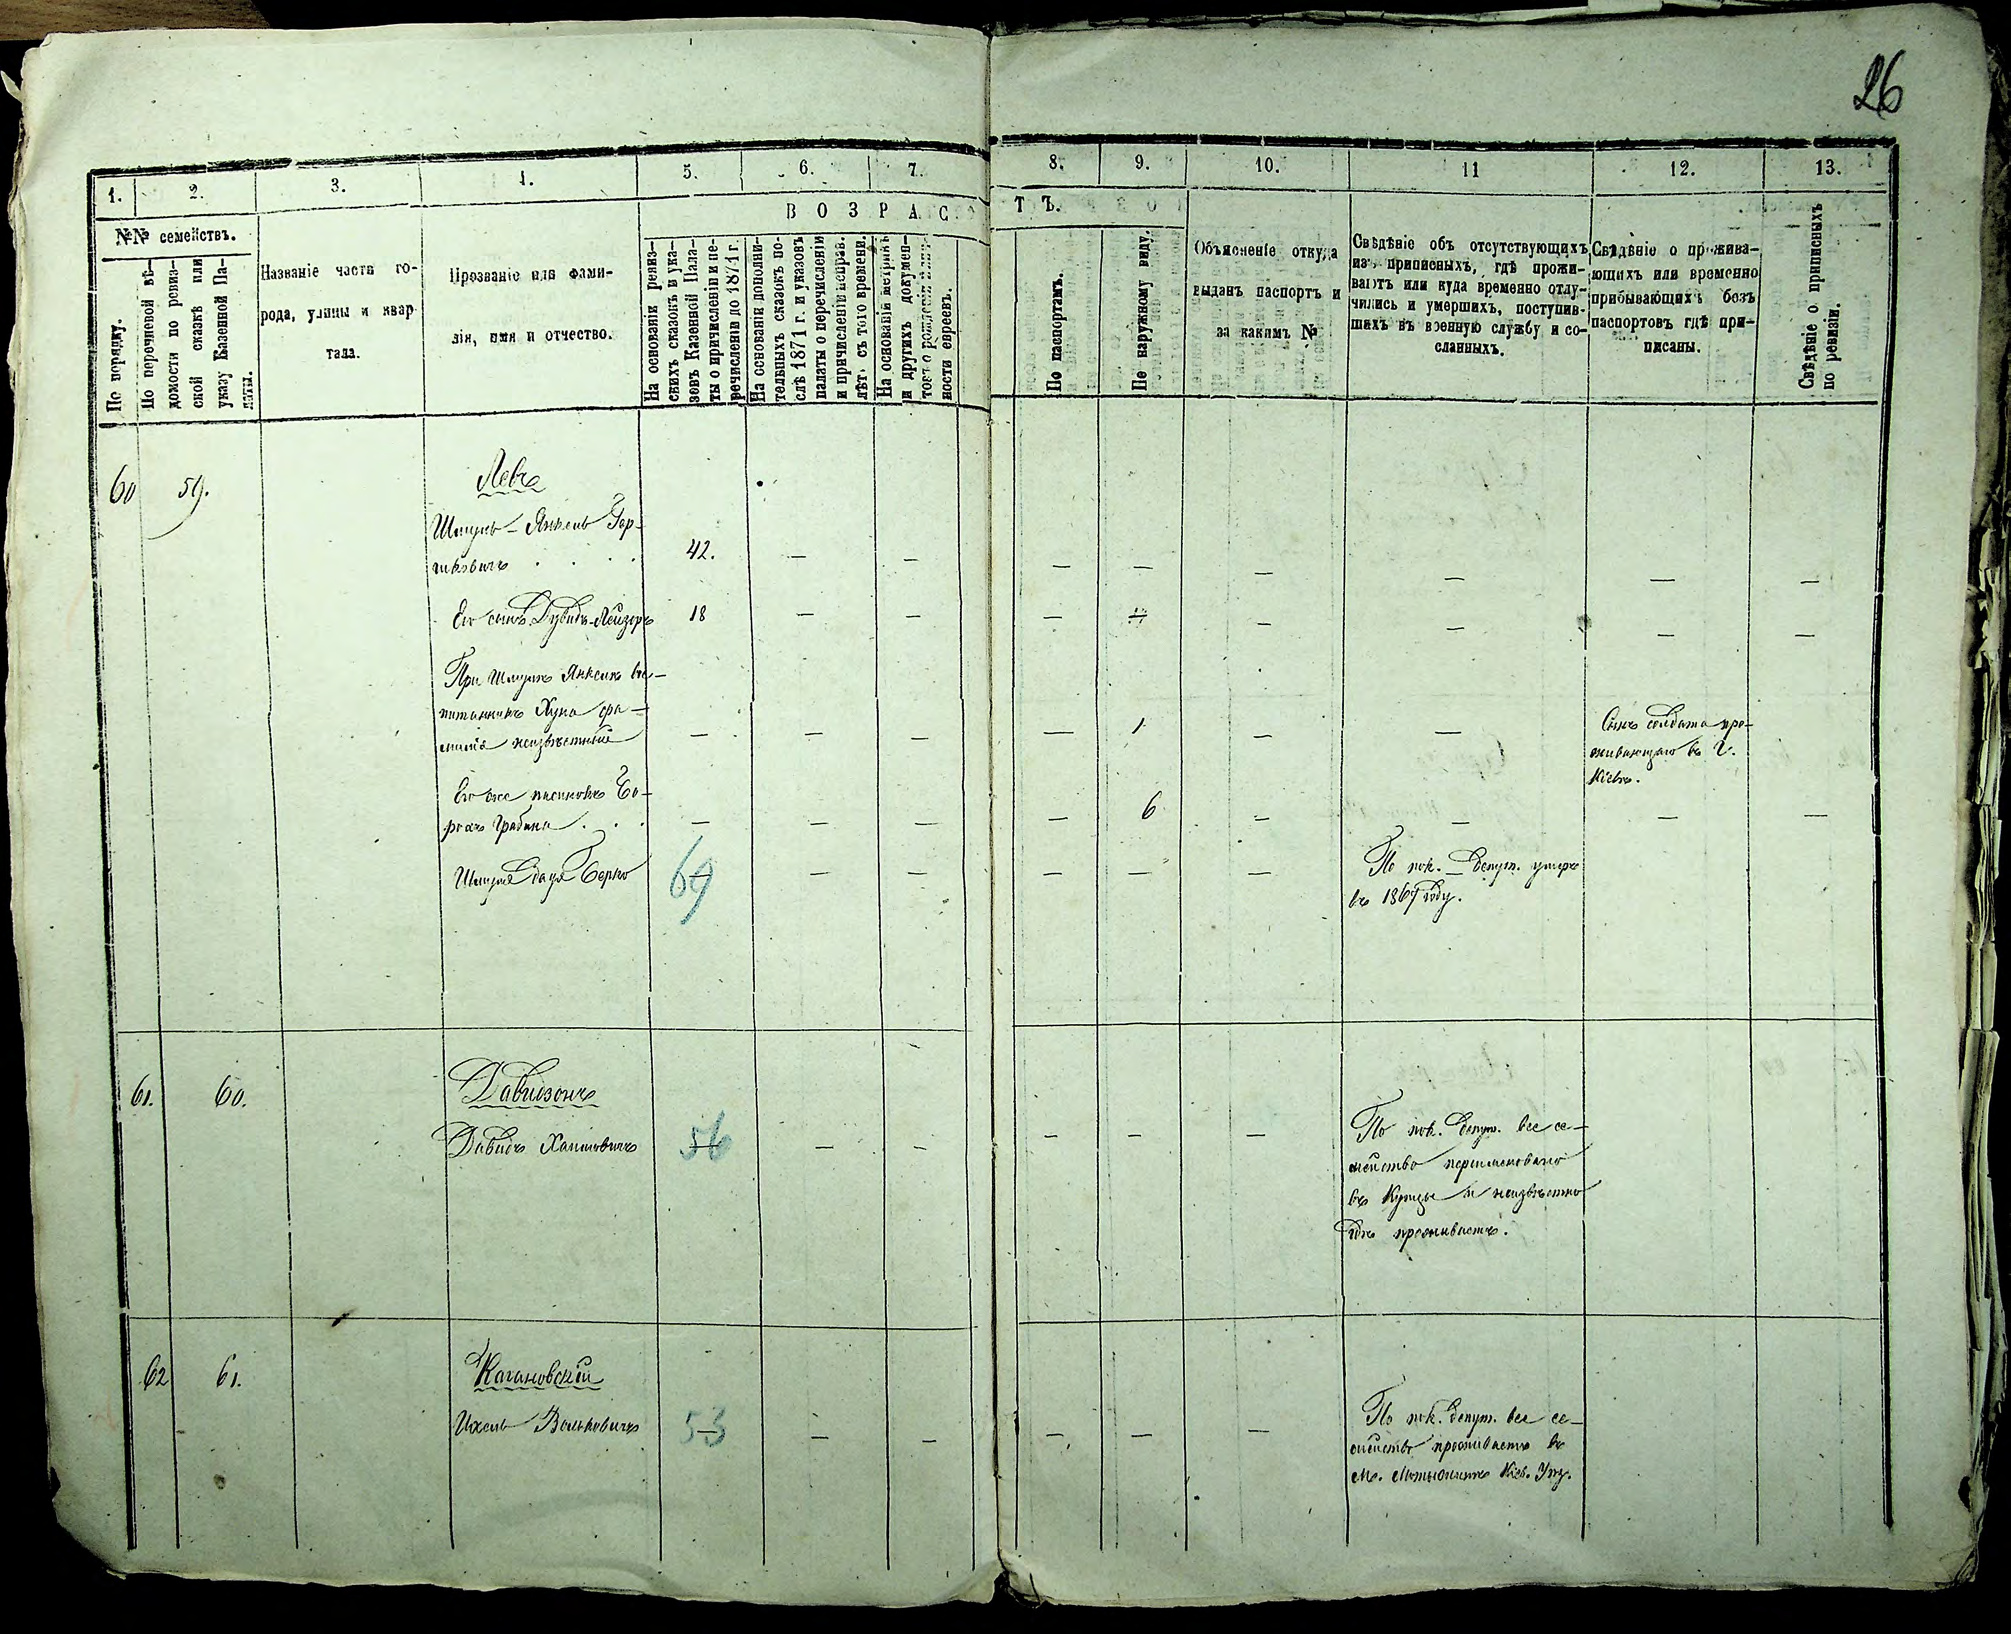 26
1. 2. 3. 4. 5. 6. 7. 8. 9. 10. 11 12. 13.
№№ семействъ.
По порядку.
По перечневой вѣ-
домости по ревиз-
ской сказкѣ или
указу Казенной Па-
латы.
Названіе части го-
рода, улицы и квар-
тала.
Прозваніе или фами-
лія, имя и отчество.
ВОЗРАСТЪ.
На основаніи ревиз-
скихъ сказокъ и ука-
зовъ Казенной Пала-
ты о причисленіи и пе-
речисленіи до 1871 г.
На основаніи дополни-
тельныхъ сказокъ по-
слѣ 1871 г. и указовъ
палаты о перечисленіи
и причисленіи неправ.
лѣт. съ того времени.
На основаніи метрикъ
и другихъ докумен-
товъ о рожденіи
ности евреевъ.
По паспортамъ.
По наружному виду.
Объясненіе откуда
выданъ паспортъ и
за какимъ №
Свѣдѣніе объ отсутствующихъ
изъ приписныхъ, гдѣ прожи-
ваютъ или куда временно отлу-
чились и умершихъ, поступив-
шихъ въ военную службу и со-
сланныхъ.
Свѣдѣніе о прожива-
ющихъ или временно
прибывающихъ безъ
паспортовъ гдѣ при-
писаны.
Свѣдѣніе о приписныхъ
по ревизіи.
60 59. Левъ
Шмуль-Янкель Гор-
шковичъ . . . 42. — — — — — — — —
Его сынъ Дувидъ-Лейзоръ 18 — — — — — — —
При Шмулѣ Янкелѣ вос-
питанникъ Хуна фа-
милія неизвѣстный — — — — 1 — — Сынъ солдата про-
живающаго въ г.
Кіевѣ.
Его же пасынокъ Бо-
рохъ Грабина . . . — — — — 6 — — — —
Шмуля дядя Берко 69 — — — — — По пок. депут. умеръ
въ 1867 году.
61. 60. Давидзонъ
Давидъ Хаимовичъ 56 — — — — — По пок. депут. все се-
мейство переименовано
въ Купцы и неизвѣстно
гдѣ проживаетъ.
62 61. Кагановскій
Ихель Вольковичъ 53 — — — — — По пок. депут. все се-
мейство проживаетъ въ
м. Мотыжинѣ Кіев. Уѣз.